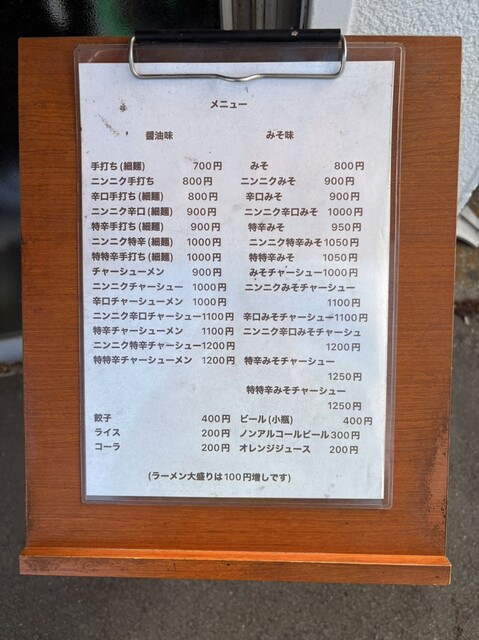 メニュー
醤油味
手打ち(細麺) 700円
ニンニク手打ち 800円
辛口手打ち(細麺) 800円
ニンニク辛口(細麺) 900円
特辛手打ち(細麺) 900円
ニンニク特辛(細麺) 1000円
特特辛手打ち(細麺) 1000円
チャーシューメン 900円
ニンニクチャーシュー 1000円
辛口チャーシューメン 1000円
ニンニク辛口チャーシュー1100円
特辛チャーシューメン 1100円
ニンニク特辛チャーシュー1200円
特特辛チャーシューメン 1200円
みそ味
みそ 800円
ニンニクみそ 900円
辛口みそ 900円
ニンニク辛口みそ 1000円
特辛みそ 950円
ニンニク特辛みそ1050円
特特辛みそ 1050円
みそチャーシュー1000円
ニンニクみそチャーシュー
1100円
辛口みそチャーシュー1100円
ニンニク辛口みそチャーシュ
1200円
特辛みそチャーシュー
1250円
特特辛みそチャーシュー
1250円
餃子 400円
ライス 200円
コーラ 200円
ビール(小瓶) 400円
ノンアルコールビール300円
オレンジジュース 200円
(ラーメン大盛りは100円増しです)